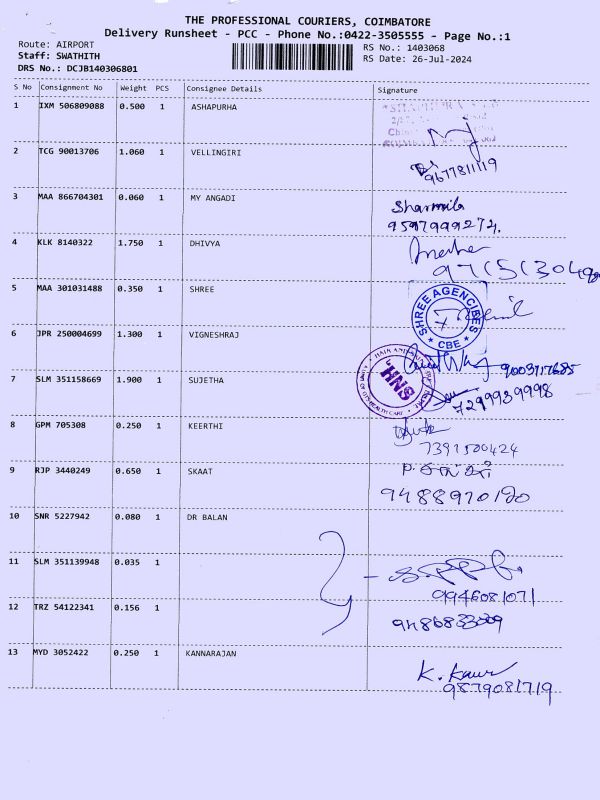 THE PROFESSIONAL COURIERS, COIMBATORE
Delivery Runsheet - PCC - Phone No.:0422-3505555 - Page No.:1
Route: AIRPORT RS No.: 1403068
Staff: SWATHITH RS Date: 26-Jul-2024
DRS No.: DCJB140306801
S No Consignment No Weight PCS Consignee Details Signature
1 IXM 506809088 0.500 1 ASHAPURHA
2 TCG 90013706 1.060 1 VELLINGIRI
9677811119
3 MAA 866704301 0.060 1 MY ANGADI Sharmila
9597999274.
4 KLK 8140322 1.750 1 DHIVYA
5 MAA 301031488 0.350 1 SHREE SHREE AGENCIBES
CBE
6 JPR 250004699 1.300 1 VIGNESHRAJ
9003717685
7 SLM 351158669 1.900 1 SUJETHA HNS
7299939998
8 GPM 705308 0.250 1 KEERTHI
7391500424
9 RJP 3440249 0.650 1 SKAAT
9488970190
10 SNR 5227942 0.080 1 DR BALAN
11 SLM 351139948 0.035 1
9946081071
12 TRZ 54122341 0.156 1
13 MYD 3052422 0.250 1 KANNARAJAN K. Kaur
9879081719